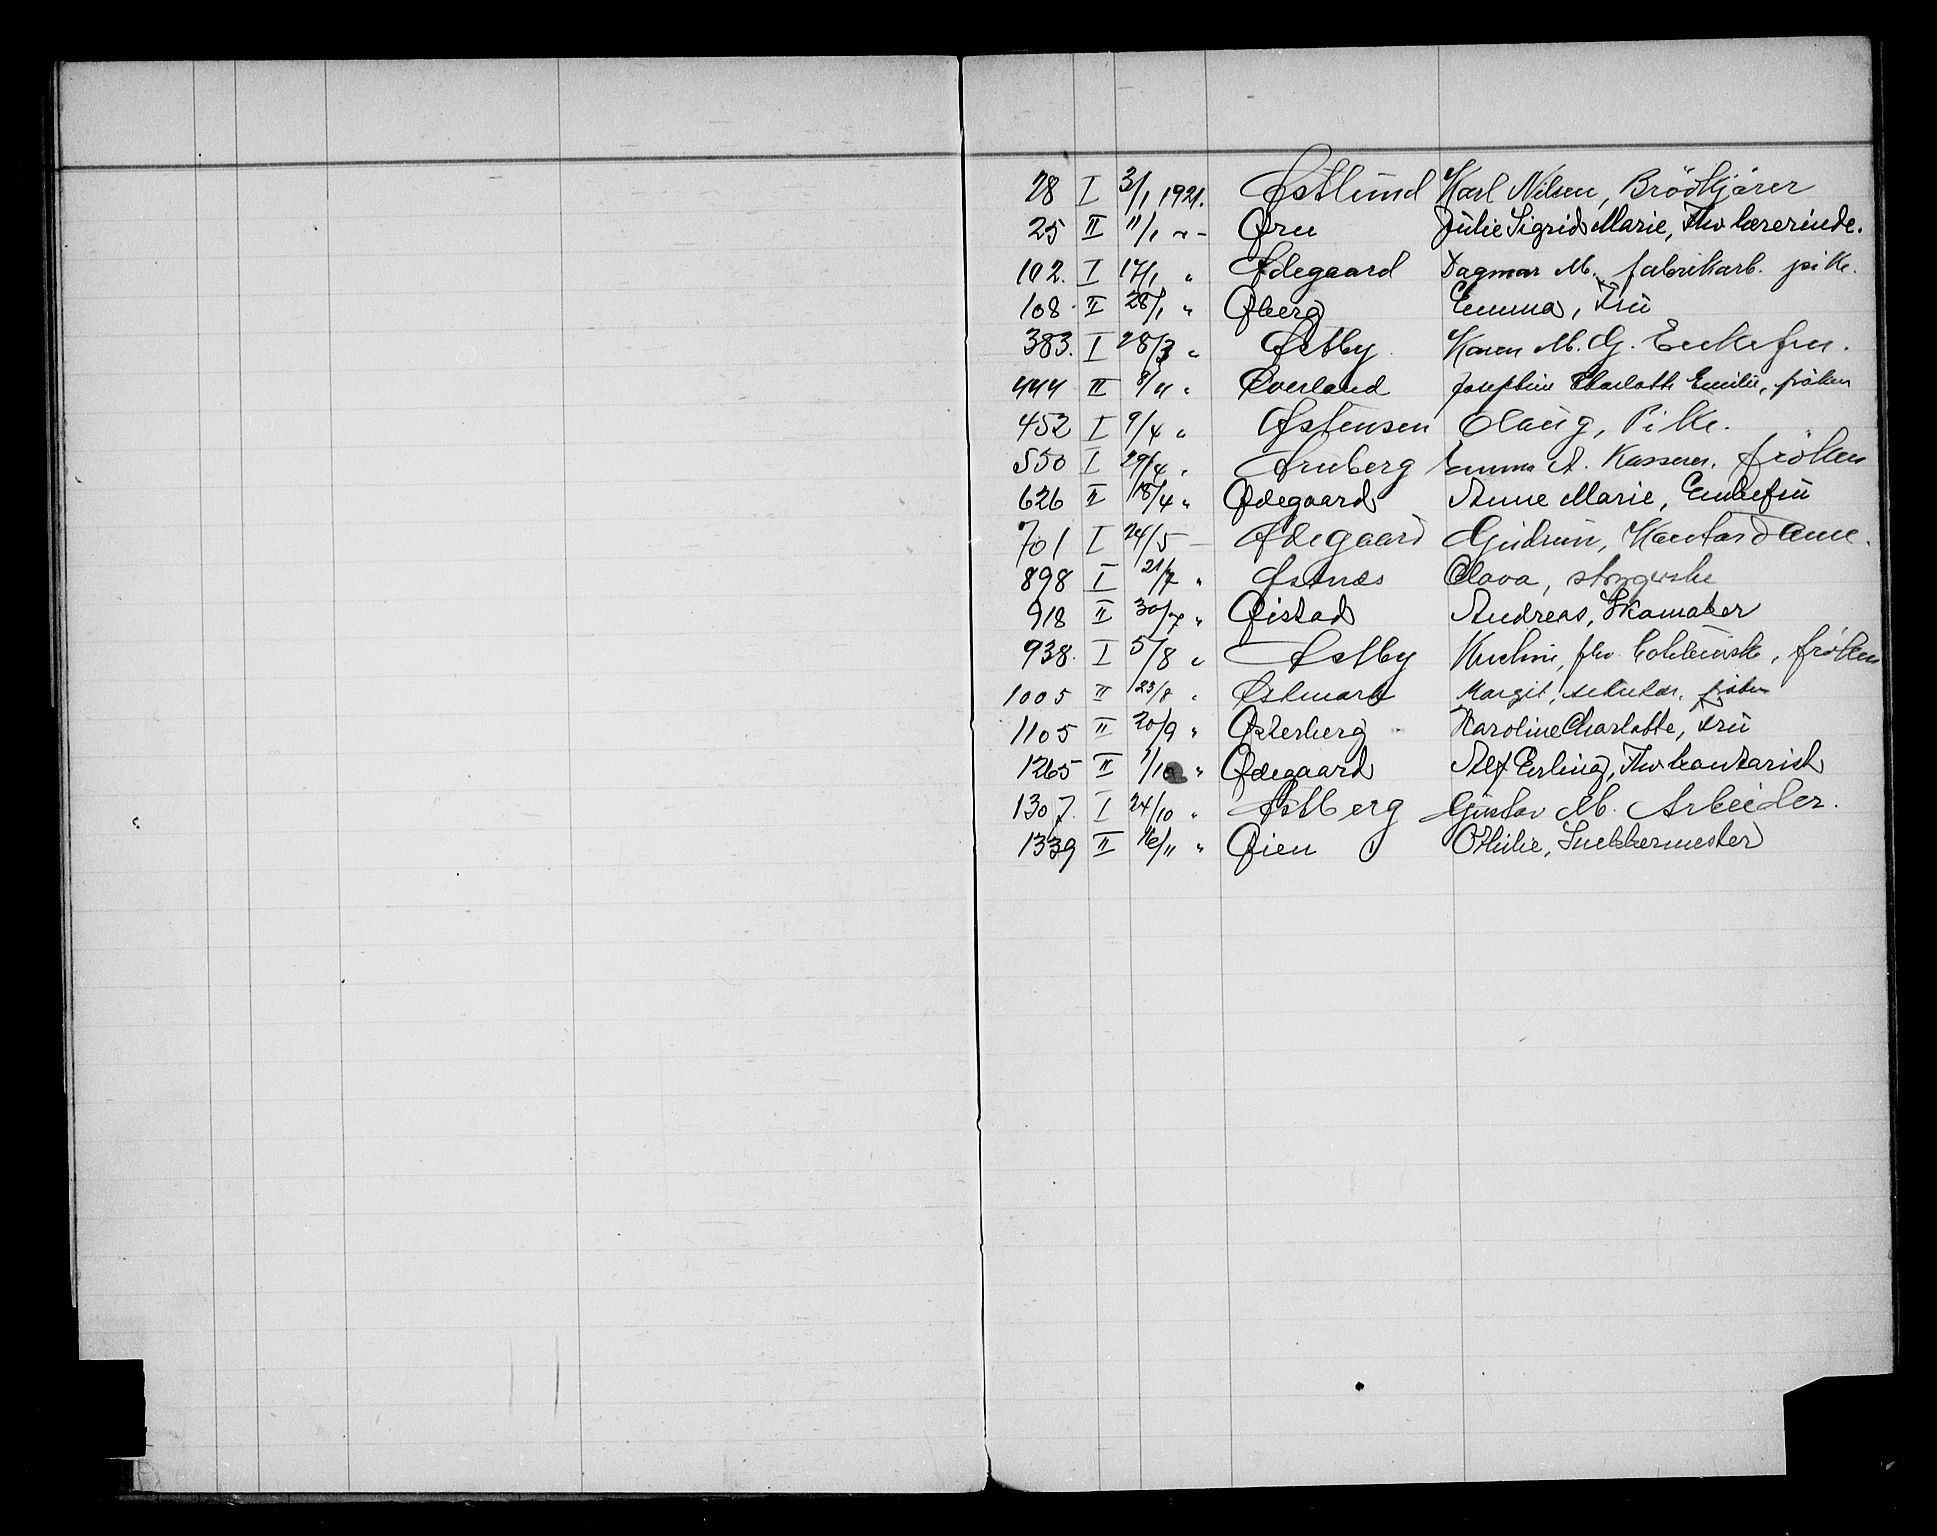 28 I 3/1 1921. Østlund Karl Nilsen, Brödkjører
25 II 11/1 -"- Ørn Julie Sigrid Marie, Fhv lærerinde.
102. I 17/1 " Ødegaard Dagmar M. fabrikarb. pike.
108 II 28/1 " Øberg Emma, Frü
383. I 28/3 " Østby Karen M. G. Enkefru.
444 II 9/4 " Øverland Josephine Charlotte Emilie, frøken
452 I 9/4 " Østensen Olaug, Pike.
550 I 29/4 " Ørnberg Emma A. Kasserer. frøken
626 II 18/4 " Ødegaard Anne Marie, Enkefrü
701 I 24/5 - Ødegaard Gudrun, Kontordame.
898 I 21/7 " Østnæs Olava, strygerske
918 II 30/7 " Øistad Andreas, Skomaker
938. I 5/8 " Østby fhv. frøken
1005 II 23/8 " Østmark Margit, frøken
1105 II 20/9 " Østerberg Karoline Charlotte, Frü
1265 II 1/10 " Ødegaard Alf Erling, Fhv kontorist
1307. I 24/10 " Østberg Gustav M. Arbeider.
1339 II 16/11 " Øien Othilie, Snekkermester